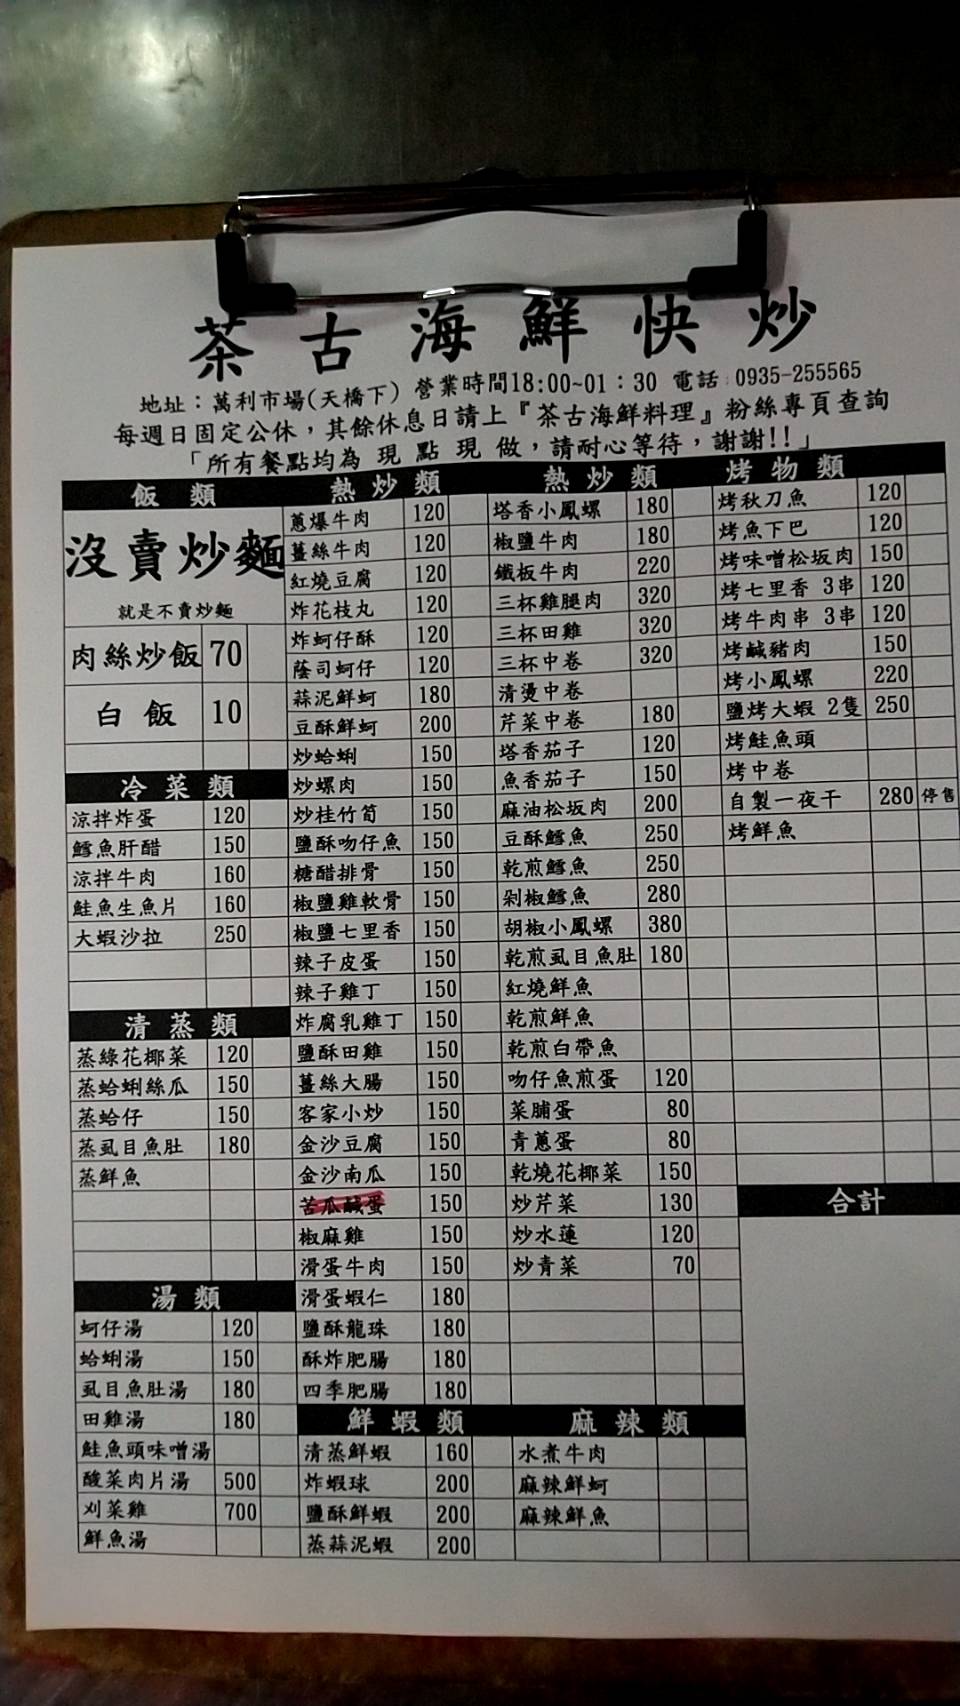 茶古海鮮快炒
地址：萬利市場(天橋下) 營業時間18:00~01：30 電話：0935-255565
每週日固定公休，其餘休息日請上『茶古海鮮料理』粉絲專頁查詢
「所有餐點均為 現 點 現 做，請耐心等待，謝謝!!」
飯類
沒賣炒麵
就是不賣炒麵
肉絲炒飯 70
白飯 10
冷菜類
涼拌炸蛋 120
鱈魚肝醋 150
涼拌牛肉 160
鮭魚生魚片 160
大蝦沙拉 250
清蒸類
蒸綠花椰菜 120
蒸蛤蜊絲瓜 150
蒸蛤仔 150
蒸虱目魚肚 180
蒸鮮魚
湯類
蚵仔湯 120
蛤蜊湯 150
虱目魚肚湯 180
田雞湯 180
鮭魚頭味噌湯
酸菜肉片湯 500
刈菜雞 700
鮮魚湯
熱炒類
蔥爆牛肉 120
薑絲牛肉 120
紅燒豆腐 120
炸花枝丸 120
炸蚵仔酥 120
蔭司蚵仔 120
蒜泥鮮蚵 180
豆酥鮮蚵 200
炒蛤蜊 150
炒螺肉 150
炒桂竹筍 150
鹽酥吻仔魚 150
糖醋排骨 150
椒鹽雞軟骨 150
椒鹽七里香 150
辣子皮蛋 150
辣子雞丁 150
炸腐乳雞丁 150
鹽酥田雞 150
薑絲大腸 150
客家小炒 150
金沙豆腐 150
金沙南瓜 150
苦瓜鹹蛋 150
椒麻雞 150
滑蛋牛肉 150
滑蛋蝦仁 180
鹽酥龍珠 180
酥炸肥腸 180
四季肥腸 180
鮮蝦類
清蒸鮮蝦 160
炸蝦球 200
鹽酥鮮蝦 200
蒸蒜泥蝦 200
熱炒類
塔香小鳳螺 180
椒鹽牛肉 180
鐵板牛肉 220
三杯雞腿肉 320
三杯田雞 320
三杯中卷 320
清燙中卷
芹菜中卷 180
塔香茄子 120
魚香茄子 150
麻油松坂肉 200
豆酥鱈魚 250
乾煎鱈魚 250
剁椒鱈魚 280
胡椒小鳳螺 380
乾煎虱目魚肚 180
紅燒鮮魚
乾煎鮮魚
乾煎白帶魚
吻仔魚煎蛋 120
菜脯蛋 80
青蔥蛋 80
乾燒花椰菜 150
炒芹菜 130
炒水蓮 120
炒青菜 70
麻辣類
水煮牛肉
麻辣鮮蚵
麻辣鮮魚
烤物類
烤秋刀魚 120
烤魚下巴 120
烤味噌松坂肉 150
烤七里香 3串 120
烤牛肉串 3串 120
烤鹹豬肉 150
烤小鳳螺 220
鹽烤大蝦 2隻 250
烤鮭魚頭
烤中卷
自製一夜干 280 停售
烤鮮魚
合計